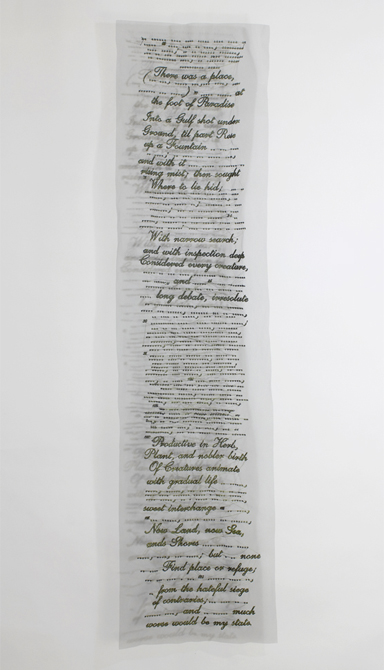 ( There was a place,
) at
the foot of Paradise
Into a Gulf shot under
Ground, til part Rose
up a Fountain
and with it
rising mist; then sought
Where to lie hid;
With narrow search;
and with inspection deep
Considered every creature,
and
long debate, irresolute
Productive in Herb,
Plant, and nobler birth
Of Creatures animate
with gradual life
sweet interchange
Now Land, now Sea,
ands Shores
; but none
Find place or refuge;
from the hateful siege
of contraries;
, and much
worse would be my state.